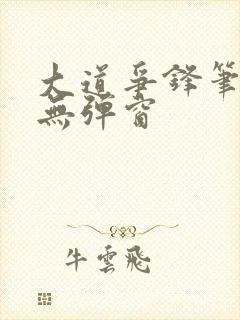 大道爭鋒筆
無彈窗
牛雲飛